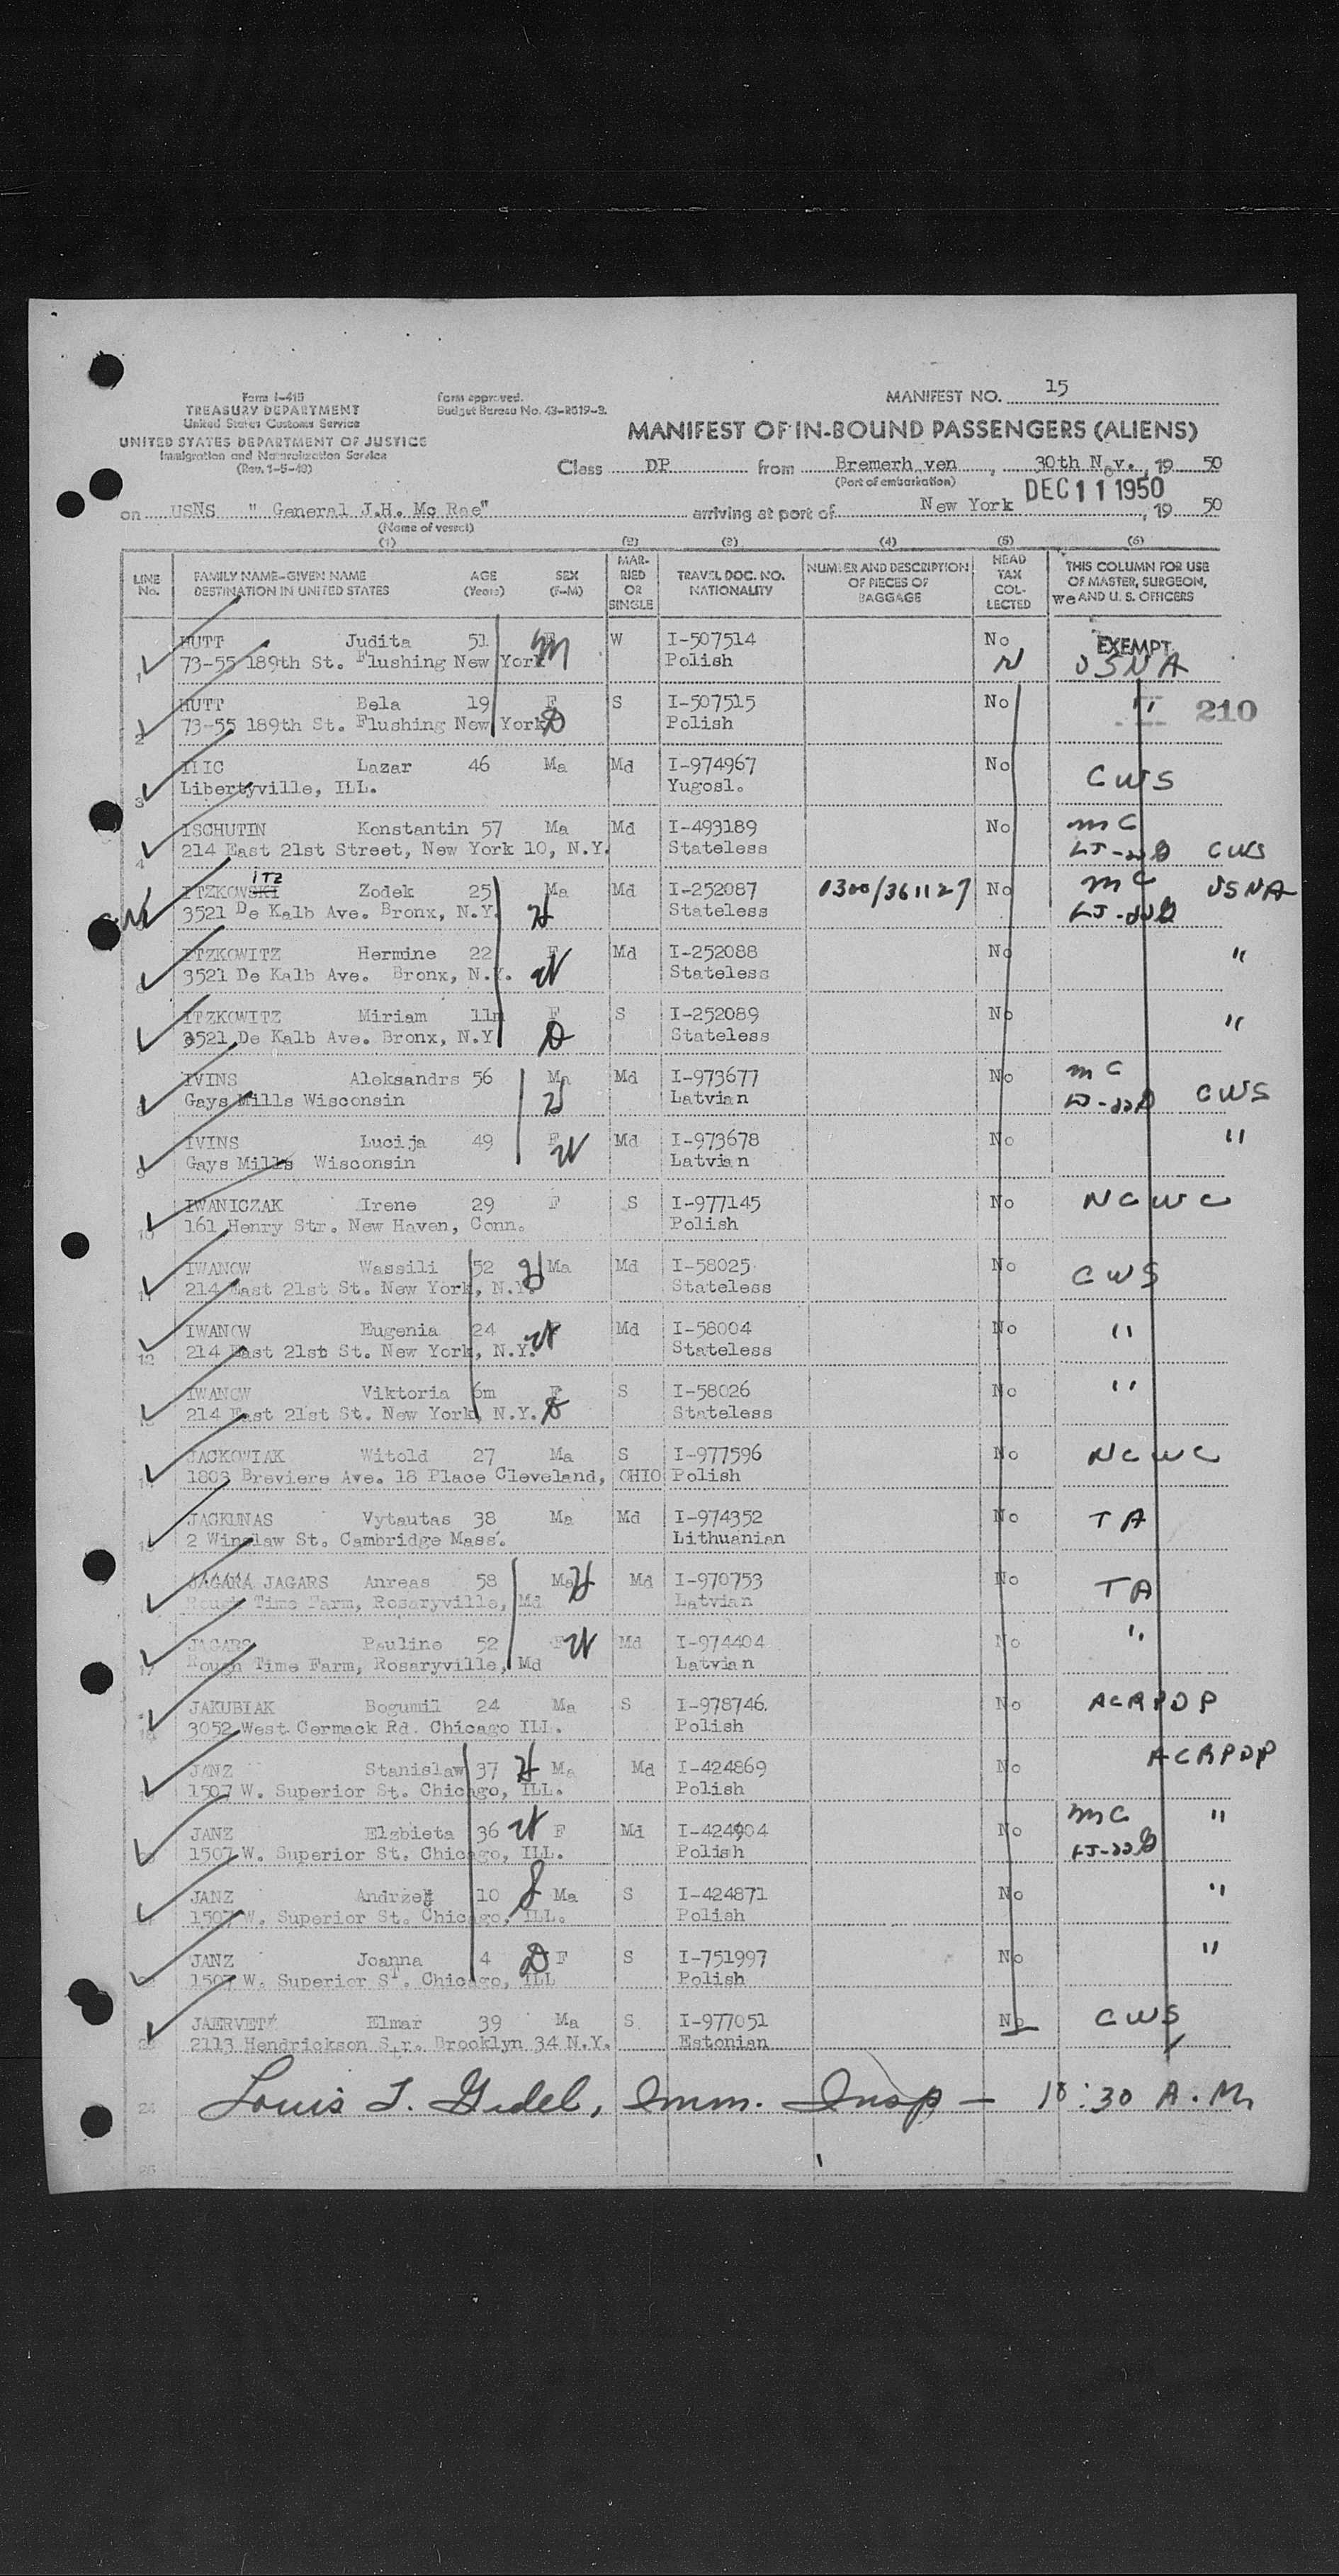 Form I-415
TREASURY DEPARTMENT
United States Customs Service
UNITED STATES DEPARTMENT OF JUSTICE
Immigration and Naturalization Service
(Rev. 1-5-49)
form approved.
Budget Bureau No. 43-R019-3.
MANIFEST NO. 15
MANIFEST OF IN-BOUND PASSENGERS (ALIENS)
Class DP from Bremerh ven, 30th Nov., 19 50
(Port of embarkation)
DEC 11 1950
on USNS " General J.H. Mc Rae" arriving at port of New York, 19 50
(Name of vessel)
(1) (2) (3) (4) (5) (6)
LINE No. FAMILY NAME–GIVEN NAME DESTINATION IN UNITED STATES AGE (Years) SEX (F–M) MARRIED OR SINGLE TRAVEL DOC. NO. NATIONALITY NUMBER AND DESCRIPTION OF PIECES OF BAGGAGE HEAD TAX COLLECTED THIS COLUMN FOR USE OF MASTER, SURGEON, AND U. S. OFFICERS
HUTT Judita 51 M W I-507514 No EXEMPT
73-55 189th St. Flushing New York Polish N USNA
2 HUTT Bela 19 F S I-507515 No " 210
73-55 189th St. Flushing New York D Polish
3 Lazar 46 Ma Md I-974967 No CWS
Libertyville, ILL. Yugosl.
4 ISCHUTIN Konstantin 57 Ma Md I-493189 No MC
214 East 21st Street, New York 10, N.Y. Stateless CWS
ITZKOWSKI ITZ Zodek 25 Ma Md I-252087 0300/361127 No MC USNA
3521 De Kalb Ave. Bronx, N.Y. H Stateless
6 ITZKOWITZ Hermine 22 F Md I-252088 No "
3521 De Kalb Ave. Bronx, N.Y. W Stateless
ITZKOWITZ Miriam 11m F S I-252089 No "
3521 De Kalb Ave. Bronx, N.Y D Stateless
IVINS Aleksandrs 56 Ma Md I-973677 No MC
Gays Mills Wisconsin H Latvian CWS
9 IVINS Lucija 49 F Md I-973678 No "
Gays Mills Wisconsin W Latvian
10 IWANICZAK Irene 29 F S I-977145 No NCWC
161 Henry Str. New Haven, Conn. Polish
11 IWANOW Wassili 52 H Ma Md I-58025 No CWS
214 East 21st St. New York, N.Y. Stateless
12 IWANOW Eugenia 24 W Md I-58004 No "
214 East 21st St. New York, N.Y. Stateless
IWANOW Viktoria 6m F S I-58026 No "
214 East 21st St. New York, N.Y. D Stateless
JACKOWIAK Witold 27 Ma S I-977596 No NCWC
1803 Breviere Ave. 18 Place Cleveland, OHIO Polish
JACKUNAS Vytautas 38 Ma Md I-974352 No TA
2 Winslaw St. Cambridge Mass. Lithuanian
JAGARA JAGARS Anreas 58 Ma H Md I-970753 No TA
Rough Time Farm, Rosaryville, Md Latvian
17 JAGARS Pauline 52 F W Md I-974404 No "
Rough Time Farm, Rosaryville, Md Latvian
JAKUBIAK Bogumil 24 Ma S I-978746. No ACRPDP
3052 West Cermack Rd. Chicago ILL. Polish
JANZ Stanislaw 37 H Ma Md I-424869 No ACRPDP
1507 W. Superior St. Chicago, ILL. Polish
JANZ Elzbieta 36 W F Md I-424904 No MC "
1507 W. Superior St. Chicago, ILL. Polish
JANZ Andrzej 10 S Ma S I-424871 No "
1507 W. Superior St. Chicago, ILL. Polish
JANZ Joanna 4 D F S I-751997 No "
1507 W. Superior St. Chicago, ILL Polish
23 JAERVET Elmar 39 Ma S I-977051 No CWS
2113 Hendrickson Str. Brooklyn 34 N.Y. Estonian
24 Louis Imm. Insp — 10:30 A.M.
25